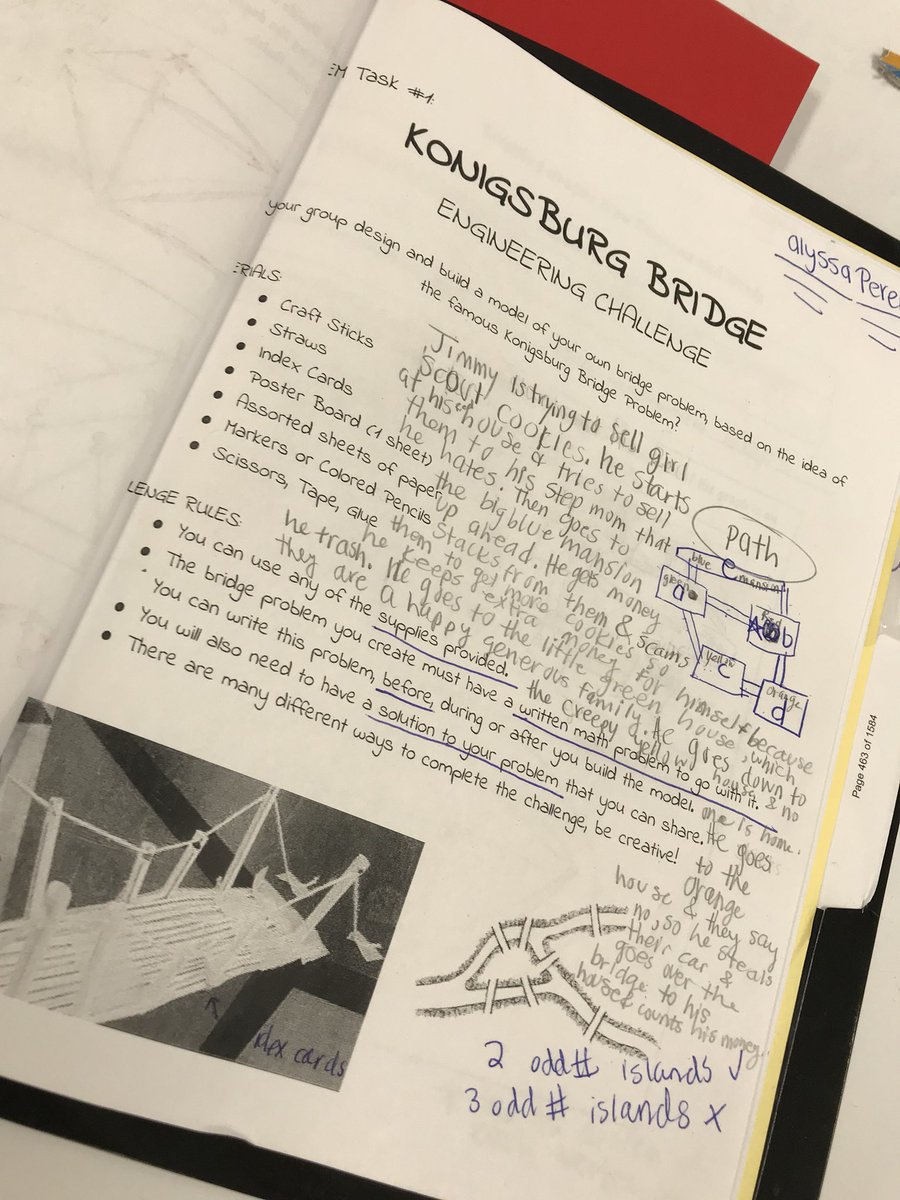 EM Task #1:
KONIGSBURG BRIDGE
ENGINEERING CHALLENGE
alyssa Pere
your group design and build a model of your own bridge problem, based on the idea of
the famous Konigsburg Bridge Problem?
ERIALS:
Craft Sticks
Straws
Index Cards
Poster Board (1 sheet)
Assorted sheets of paper
Markers or Colored Pencils
Scissors, Tape, Glue
Jimmy is trying to sell girl
Scout cookies. he starts
at his house & tries to sell
them to his step mom that
he hates. Then goes to
the big blue mansion
up ahead. He gets money
Stacks from them & scams
them to get more cookies so
he keeps extra money for himself because
he trash. He goes to the little green house, which
they are a happy generous family. He goes down to
the creepy yellow house & no
one is home.
He goes
to the
orange
house & they say
no, so he steals
their car &
goes over the
bridge to his
house & counts his money.
Path
blue
mansion
green
a
Red
b
yellow
c
orange
d
LENGE RULES:
You can use any of the supplies provided.
The bridge problem you create must have a written math problem to go with it.
You can write this problem, before, during or after you build the model.
You will also need to have a solution to your problem that you can share.
There are many different ways to complete the challenge, be creative!
Page 463 of 1584
idex cards
2 odd # islands ✓
3 odd # islands x